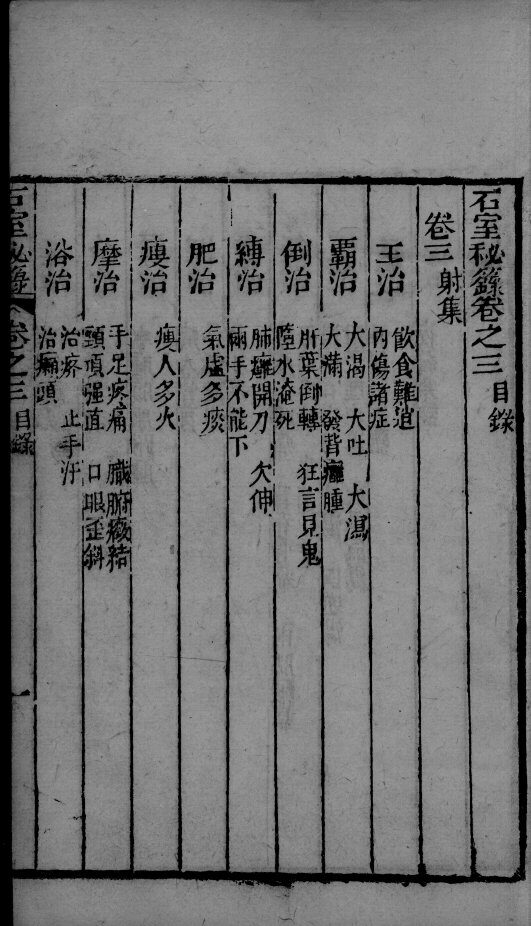 石室秘錄卷之三 目錄
卷三 射集
王治
飲食難道
內傷諸症
霸治
大渴 大吐 大瀉
大滿 發背癰腫
倒治
肝葉倒轉 狂言見鬼
墮水淹死
縛治
肺癰開刀 欠伸
兩手不能下
肥治
氣虛多痰
瘦治
瘦人多火
摩治
手足疼痛 臟腑癥結
頸項强直 口眼歪斜
浴治
治疼 止手汗
治癩頭
石室秘錄 卷之三 目錄
一